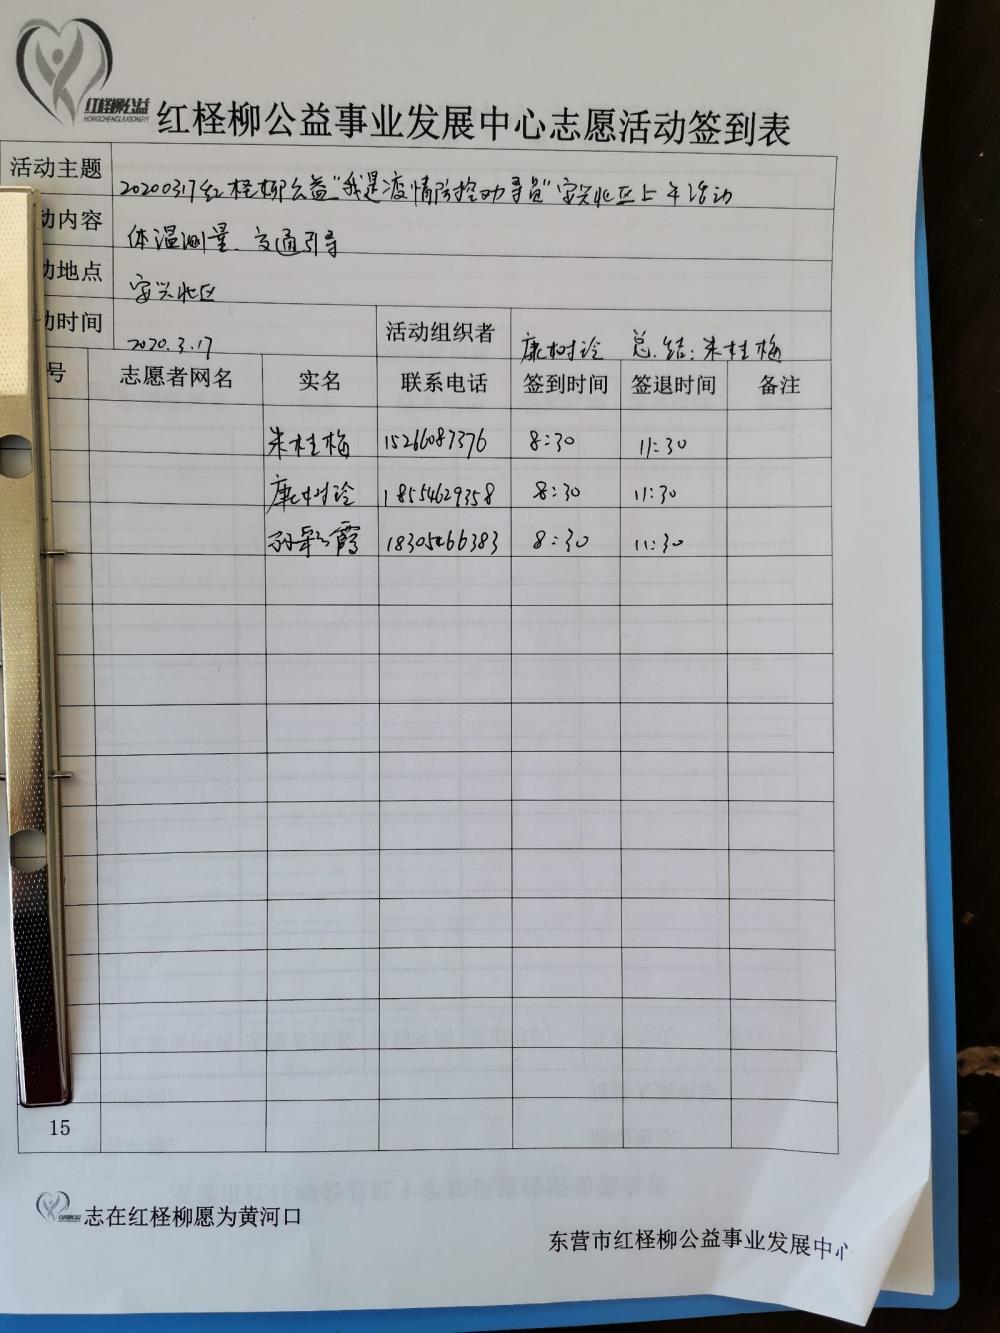 红柽柳公益
HONGCHENGLIUGONGYI
红柽柳公益事业发展中心志愿活动签到表
活动主题 20200317红柽柳公益"我是疫情防控劝导员"安兴北区上午活动
动内容 体温测量、交通引导
动地点 安兴北区
动时间 2020.3.17 活动组织者 康树玲 总结:朱桂梅
号 志愿者网名 实名 联系电话 签到时间 签退时间 备注
朱桂梅 15266087376 8:30 11:30
康树玲 18554629358 8:30 11:30
孙彩霞 18305466383 8:30 11:30
15
志在红柽柳愿为黄河口
东营市红柽柳公益事业发展中心